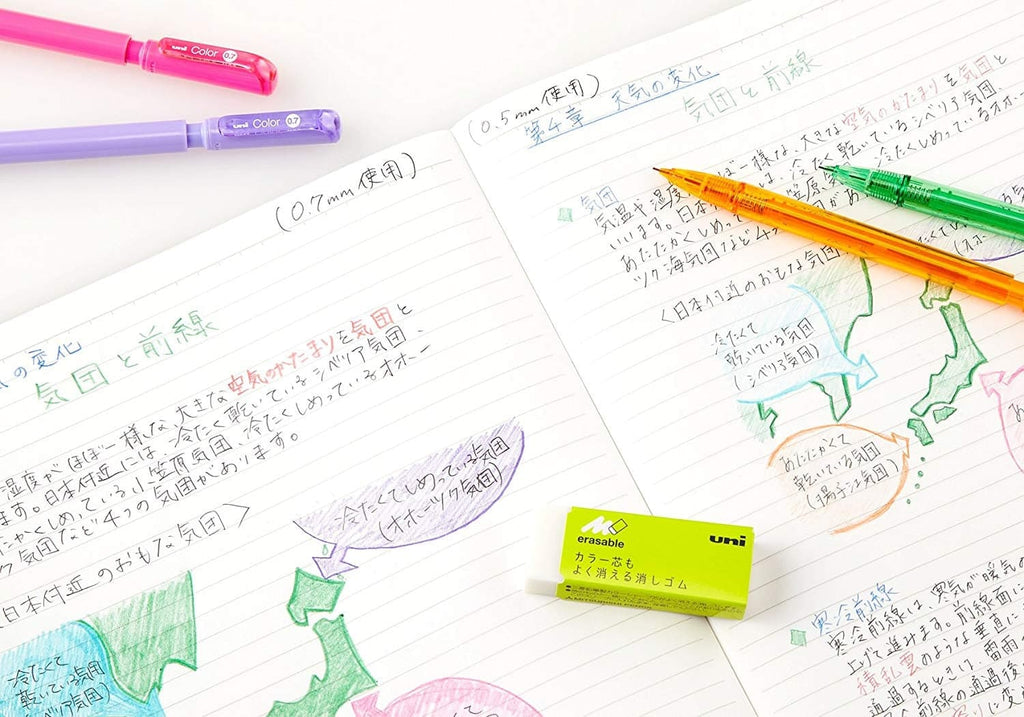 uni Color 0.7
uni Color 0.7
(0.7mm 使用)
の変化
気団と前線
湿度がほぼ一様な、大きな空気のかたまりを気団と
ます。日本付近には、冷たく乾いているシベリア気団、
たかくしめっている小笠原気団、冷たくしめっているオホー
ツク気団など4つの気団があります。
日本付近のおもな気団〉
冷たくてしめっている気団
(オホーツク気団)
冷たくて
乾いている気団
ベリア気団)
(0.5mm 使用)
第4章 天気の変化
気団と前線
気団
気温や湿度 ほぼ一様な、大きな空気のかたまりを気団と
いいます。日本 は、冷たく乾いているシベリア気団、
あたたかくしめ 笠原気 冷たくしめっているオホー
ツク海気団など4つ 団があ
〈日本付近のおもな気団
冷たくて
乾いている気団
(シベリア気団)
あたたかくて
乾いている気団
(揚子江気団)
erasable
uni
カラー芯も
よく消える消しゴム
寒冷前線
寒冷前線は、寒気が暖気の
上げて進みます。前線面に
積乱雲のような垂直に
通過するときは、雷雨
前線の通過後